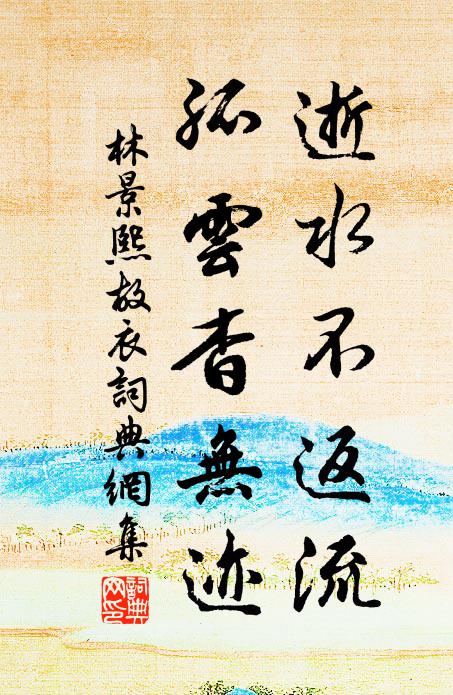 逝水不返流
孤雲杳無迹
林景熙故衣詞典網集
詞典網印